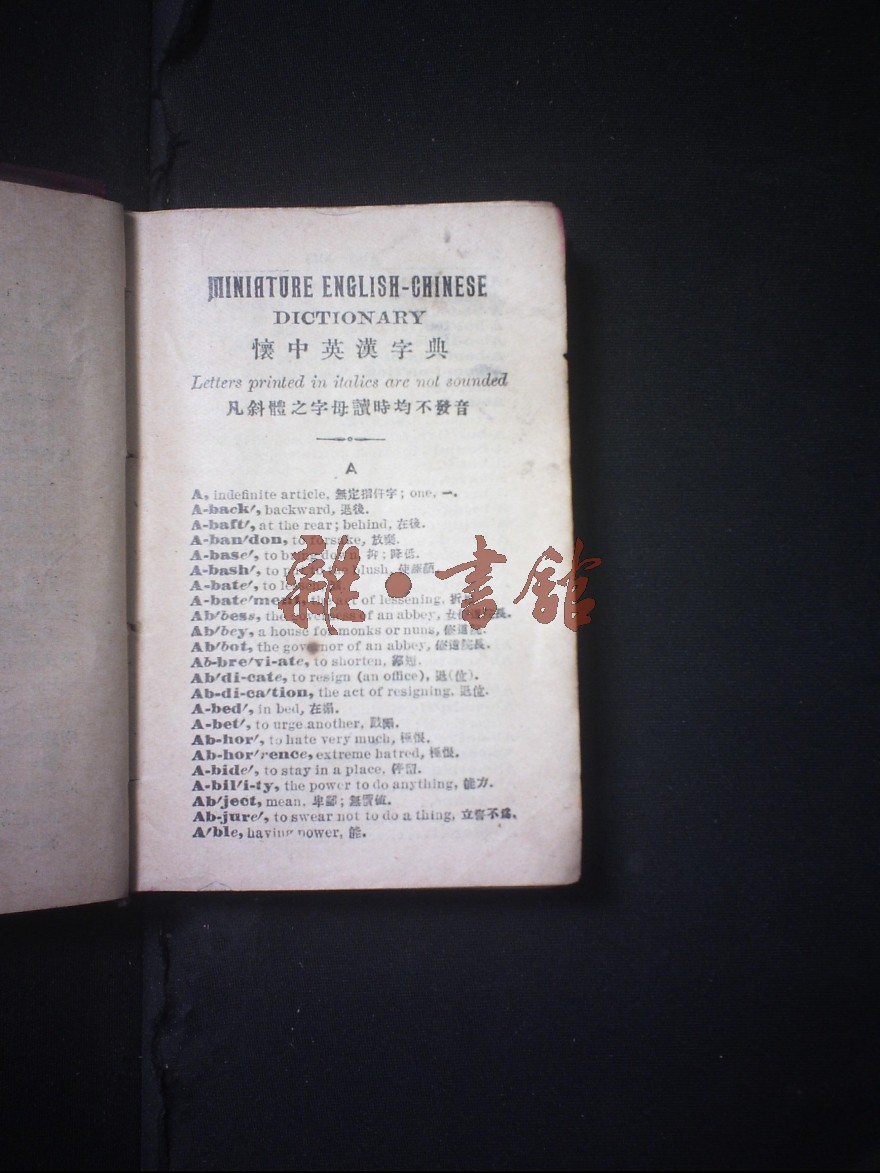 MINIATURE ENGLISH-CHINESE
DICTIONARY
懷中英漢字典
Letters printed in italics are not sounded
凡斜體之字母讀時均不發音
A
A, indefinite article, 無定指件字; one, 一.
A-back′, backward, 退後.
A-baft′, at the rear; behind, 在後.
A-ban′don, to forsake, 放棄.
A-base′, to bring down, 降低.
A-bash′, to put to the blush,
A-bate′, to
A-bate′ment, the act of lessening,
Ab′bess, the governess of an abbey,
Ab′bey, a house for monks or nuns, 修道院.
Ab′bot, the governor of an abbey, 修道院長.
Ab-bre′vi-ate, to shorten,
Ab′di-cate, to resign (an office), 退(位).
Ab-di-ca′tion, the act of resigning, 退位.
A-bed′, in bed, 在榻.
A-bet′, to urge another,
Ab-hor′, to hate very much, 極恨.
Ab-hor′rence, extreme hatred, 極恨.
A-bide′, to stay in a place, 停留.
A-bil′i-ty, the power to do anything, 能力.
Ab′ject, mean, 卑鄙; 無價值.
Ab-jure′, to swear not to do a thing, 立誓不爲.
A′ble, having power, 能.
雜·書館